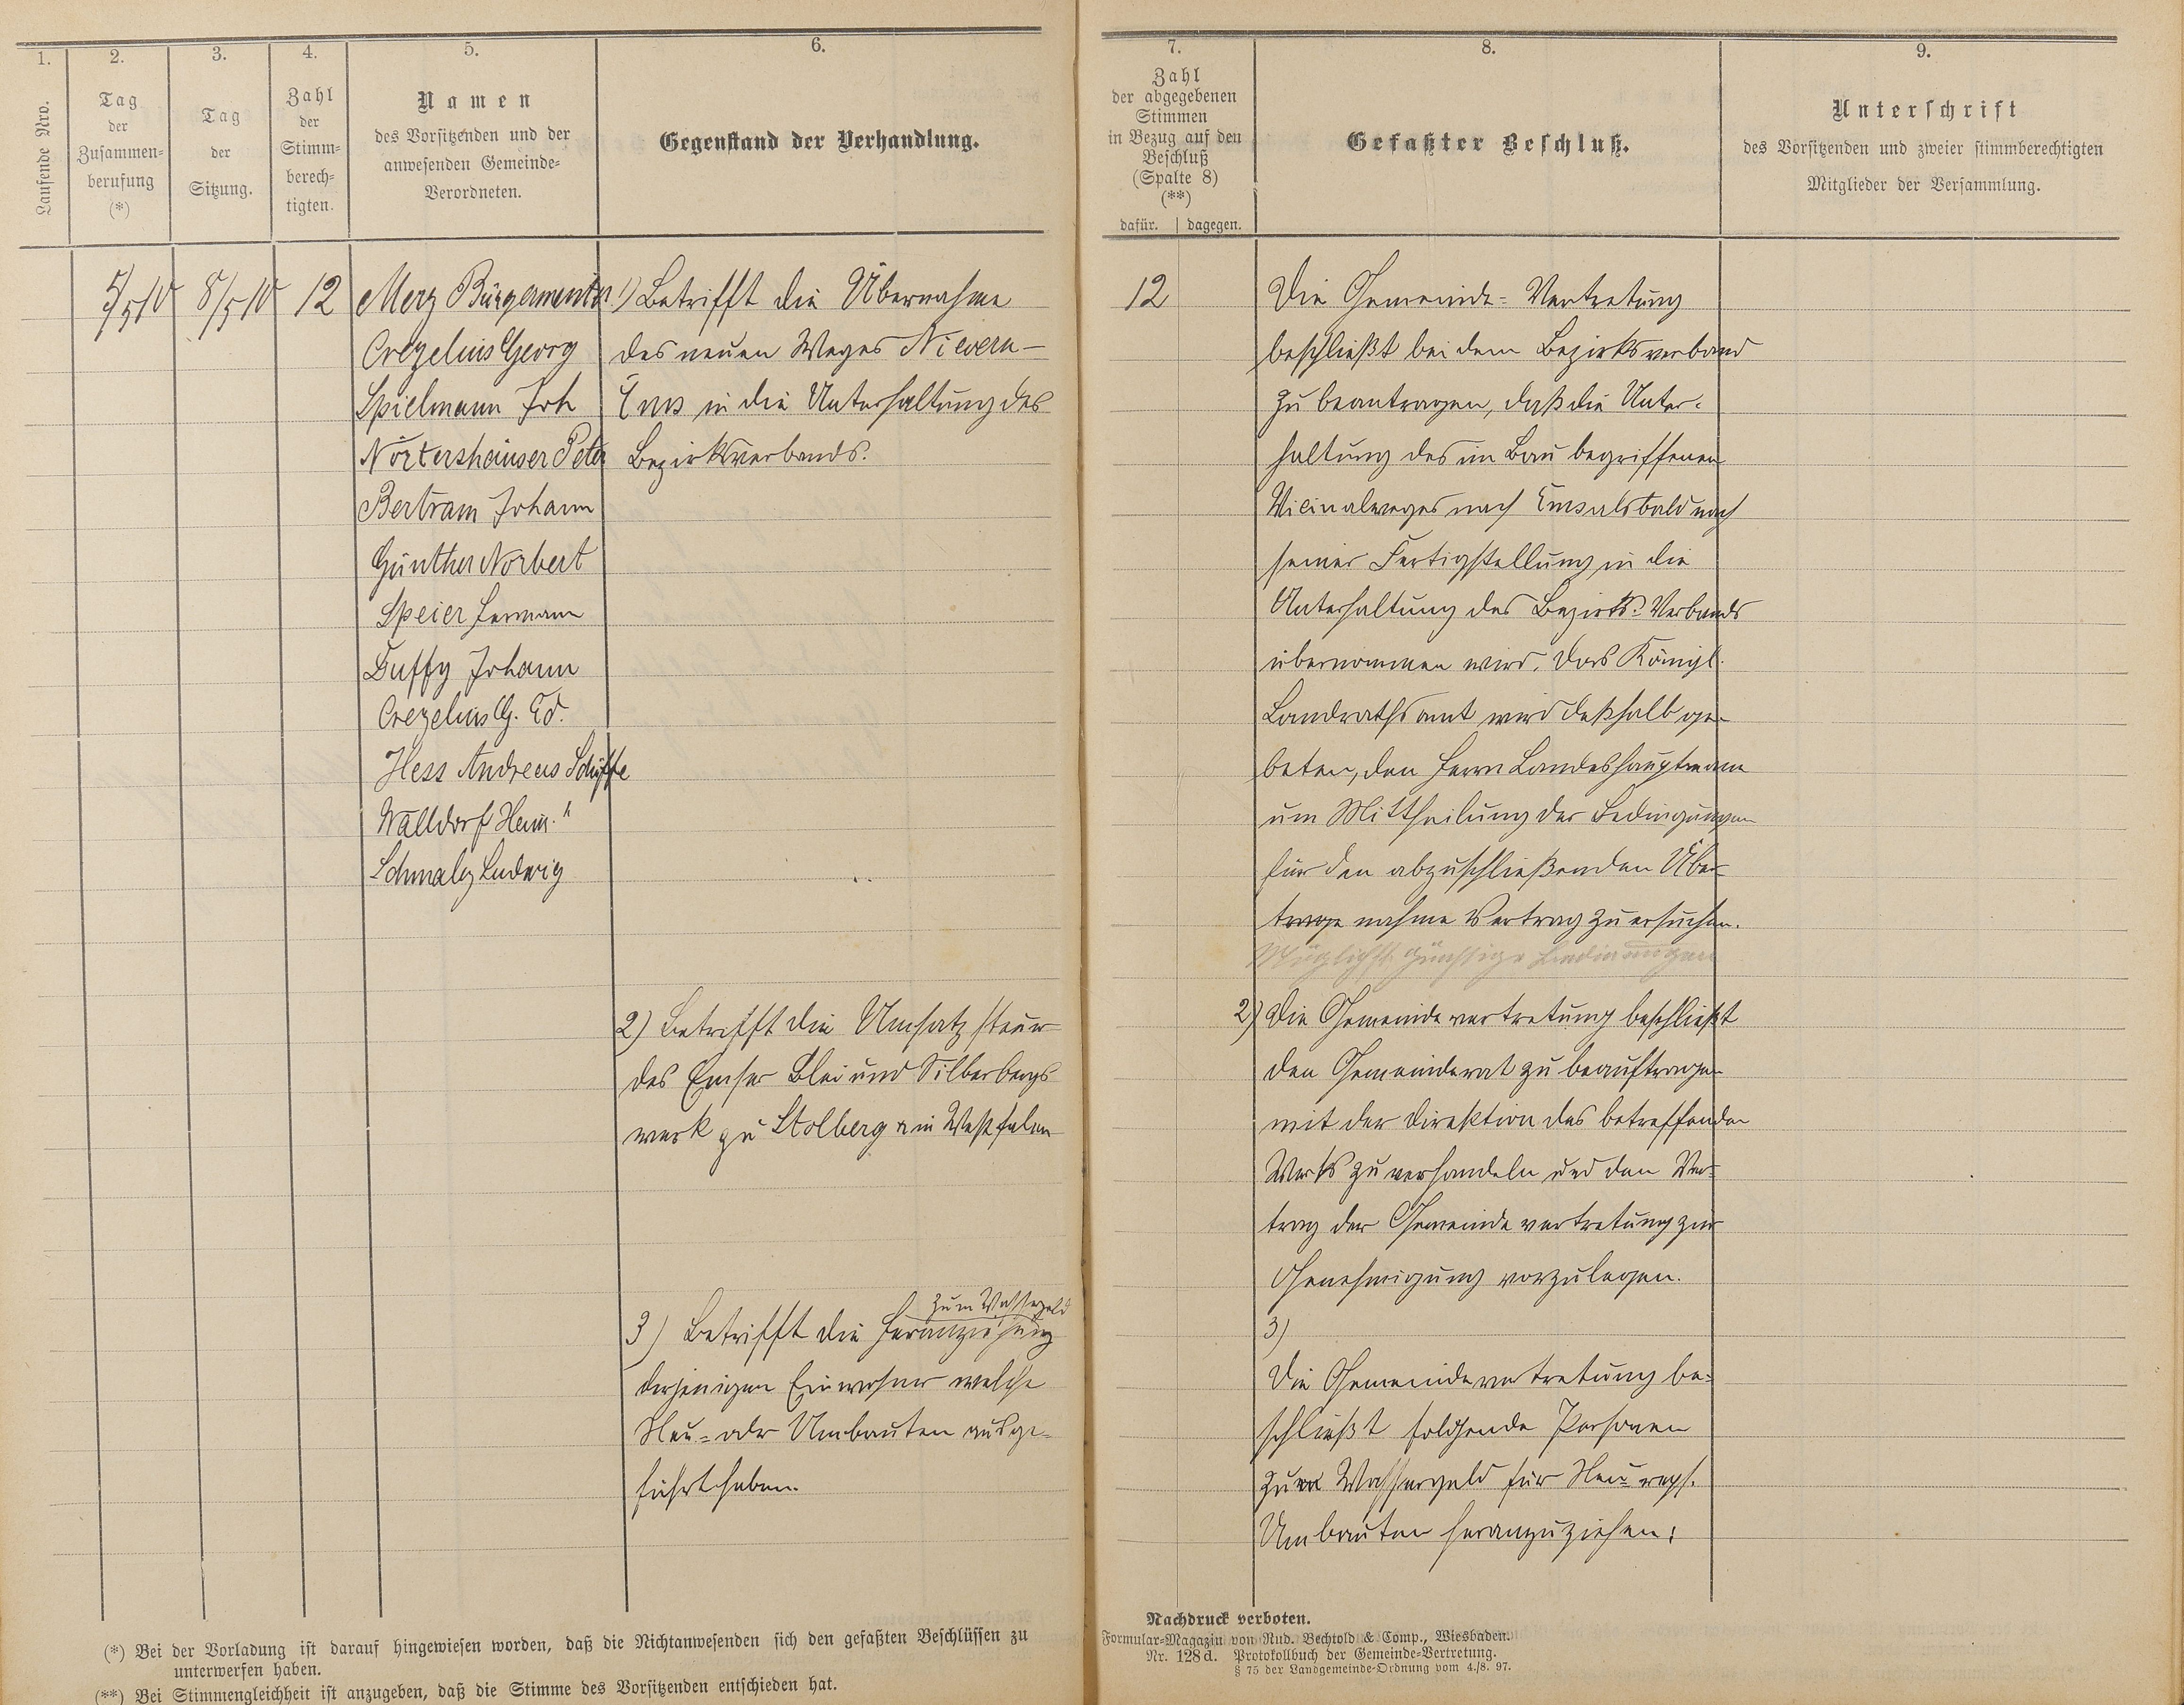 1.
Laufende Nro.
2.
Tag
der
Zusammen-
berufung
(*)
3.
Tag
der
Sitzung.
4.
Zahl
der
Stimm-
berech-
tigten.
5.
Namen
des Vorsitzenden und der
anwesenden Gemeinde-
Verordneten.
6.
Gegenstand der Verhandlung.
5/5 10
8/5 10
12
Merz Bürgermeister
Crezelius Georg
Spielmann Joh
Nörtershäuser Peter
Bertram Johann
Günther Norbert
Speier Hermann
Duffy Johann
Crezelius G. Ed.
Hess Andreas Schiffe
Walldorf Heinr. "
Schmalz Ludwig
1) Betrifft die Übernahme
des neuen Weges Nievern-
Ems in die Unterhaltung des
Bezirksverbands.
2) Betrifft die Umsatzsteuer
des Emser Blei und Silberbergs
werk zu Stolberg & in Westfalen
zum Wassergeld
3) Betrifft die Heranziehung
derjenigen Einwohner welche
Neu- oder Umbauten ausge-
führt haben.
(*) Bei der Vorladung ist darauf hingewiesen worden, daß die Nichtanwesenden sich den gefaßten Beschlüssen zu
unterwerfen haben.
(**) Bei Stimmengleichheit ist anzugeben, daß die Stimme des Vorsitzenden entschieden hat.
7.
Zahl
der abgegebenen
Stimmen
in Bezug auf den
Beschluß
(Spalte 8)
(**)
dafür. | dagegen.
8.
Gefaßter Beschluß.
9.
Unterschrift
des Vorsitzenden und zweier stimmberechtigten
Mitglieder der Versammlung.
12
Die Gemeinde-Vertretung
beschließt bei dem Bezirksverband
zu beantragen, daß die Unter-
haltung des im Bau begriffenen
Vicinalweges nach Ems alsbald nach
seiner Fertigstellung in die
Unterhaltung des Bezirks-Verbands
übernommen wird. Das Königl.
Landrathsamt wird deßhalb ge-
beten, den Herrn Landeshauptmann
um Mittheilung der Bedingungen
für den abzuschließenden Über-
trage nahme Vertrag zu ersuchen.
Möglichst günstige Bedingungen
2) Die Gemeindevertretung beschließt
den Gemeinderat zu beauftragen
mit der Direktion des betreffenden
Werks zu verhandeln und den Ver-
trag der Gemeindevertretung zur
Genehmigung vorzulegen.
3)
Die Gemeindevertretung be-
schließt folgende Personen
zum Wassergeld für Neu- resp.
Umbauten heranzuziehen:
Nachdruck verboten.
Formular-Magazin von Rud. Bechtold & Comp., Wiesbaden.
Nr. 128d. Protokollbuch der Gemeinde-Vertretung.
§ 75 der Landgemeinde-Ordnung vom 4./8. 97.